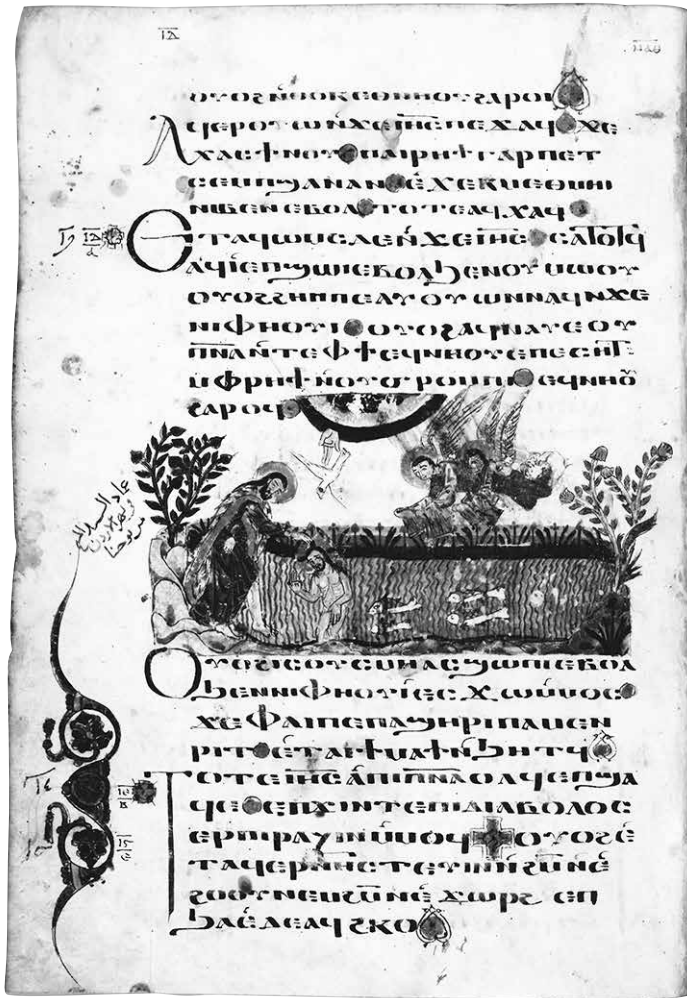 ⲓ̅ⲇ̅
ⲟⲩⲟϩ ⲛ̀ⲑⲟⲕ ⲉⲑⲛⲏⲟⲩ ϩⲁⲣⲟⲓ
ⲁϥⲉⲣⲟⲩⲱ ⲛ̀ϫⲉ ⲓ̅ⲏ̅ⲥ̅ ⲡⲉϫⲁϥ ϫⲉ
ⲭⲁⲥ ϯⲛⲟⲩ ⲡⲁⲓⲣⲏϯ ⲅⲁⲣ ⲡⲉⲧ
ⲥⲉⲙⲡϣⲁ ⲛⲁⲛ ⲉ̀ϫⲉⲕ ⲙⲉⲑⲙⲏⲓ
ⲛⲓⲃⲉⲛ ⲉⲃⲟⲗ ⲧⲟⲧⲉ ⲁϥⲭⲁϥ
ⲉⲧⲁϥⲱⲙⲥ ⲇⲉ ⲛ̀ϫⲉ ⲓ̅ⲏ̅ⲥ̅ ⲥⲁⲧⲟⲧϥ
ⲁϥⲓ̀ ⲉⲡϣⲱⲓ ⲉⲃⲟⲗϧⲉⲛ ⲡⲓⲙⲱⲟⲩ
ⲟⲩⲟϩ ϩⲏⲡⲡⲉ ⲁⲩⲟⲩⲱⲛ ⲛⲁϥ ⲛϫⲉ
ⲛⲓⲫⲏⲟⲩⲓ ⲟⲩⲟϩ ⲁϥⲛⲁⲩ ⲉⲟⲩ
ⲡ̅ⲛ̅ⲁ̅ ⲛ̀ⲧⲉ ⲫϯ ⲉϥⲛⲏⲟⲩ ⲉⲡⲉⲥⲏⲧ
ⲙⲫⲣⲏϯ ⲛ̀ⲟⲩϭⲣⲟⲙⲡⲓ ⲉϥⲛⲏⲟⲩ
ϩⲁⲣⲟϥ
ⲟⲩⲟϩ ⲓⲥ ⲟⲩⲥⲙⲏ ⲁⲥϣⲱⲡⲓ ⲉⲃⲟⲗ
ϧⲉⲛ ⲛⲓⲫⲏⲟⲩⲓ ⲉⲥϫⲱ ⲙ̀ⲙⲟⲥ
ϫⲉ ⲫⲁⲓ ⲡⲉ ⲡⲁϣⲏⲣⲓ ⲡⲁⲙⲉⲛ
ⲣⲓⲧ ⲉ̀ⲧⲁⲓϯⲙⲁϯ ⲛ̀ϧⲏⲧϥ
ⲧⲟⲧⲉ ⲓ̅ⲏ̅ⲥ̅ ⲁ̀ⲡⲓⲡ̅ⲛ̅ⲁ̅ ⲟⲗϥ ⲉⲡϣⲁ
ϥⲉ ⲉⲡϫⲓⲛⲧⲉ ⲡⲓⲇⲓⲁⲃⲟⲗⲟⲥ
ⲉⲣⲡⲓⲣⲁⲍⲓⲛ ⲙ̀ⲙⲟϥ ⲟⲩⲟϩ ⲉ̀
ⲧⲁϥⲉⲣⲛⲏⲥⲧⲉⲩⲓⲛ ⲛ̀ϩ̅ⲙ̅ ⲛ̀ⲉ̀
ϩⲟⲟⲩ ⲛⲉⲙ ϩ̅ⲙ̅ ⲛ̀ⲉ̀ϫⲱⲣϩ ⲉⲡ
ϧⲁⲉ̀ ⲇⲉ ⲁϥϩⲕⲟ